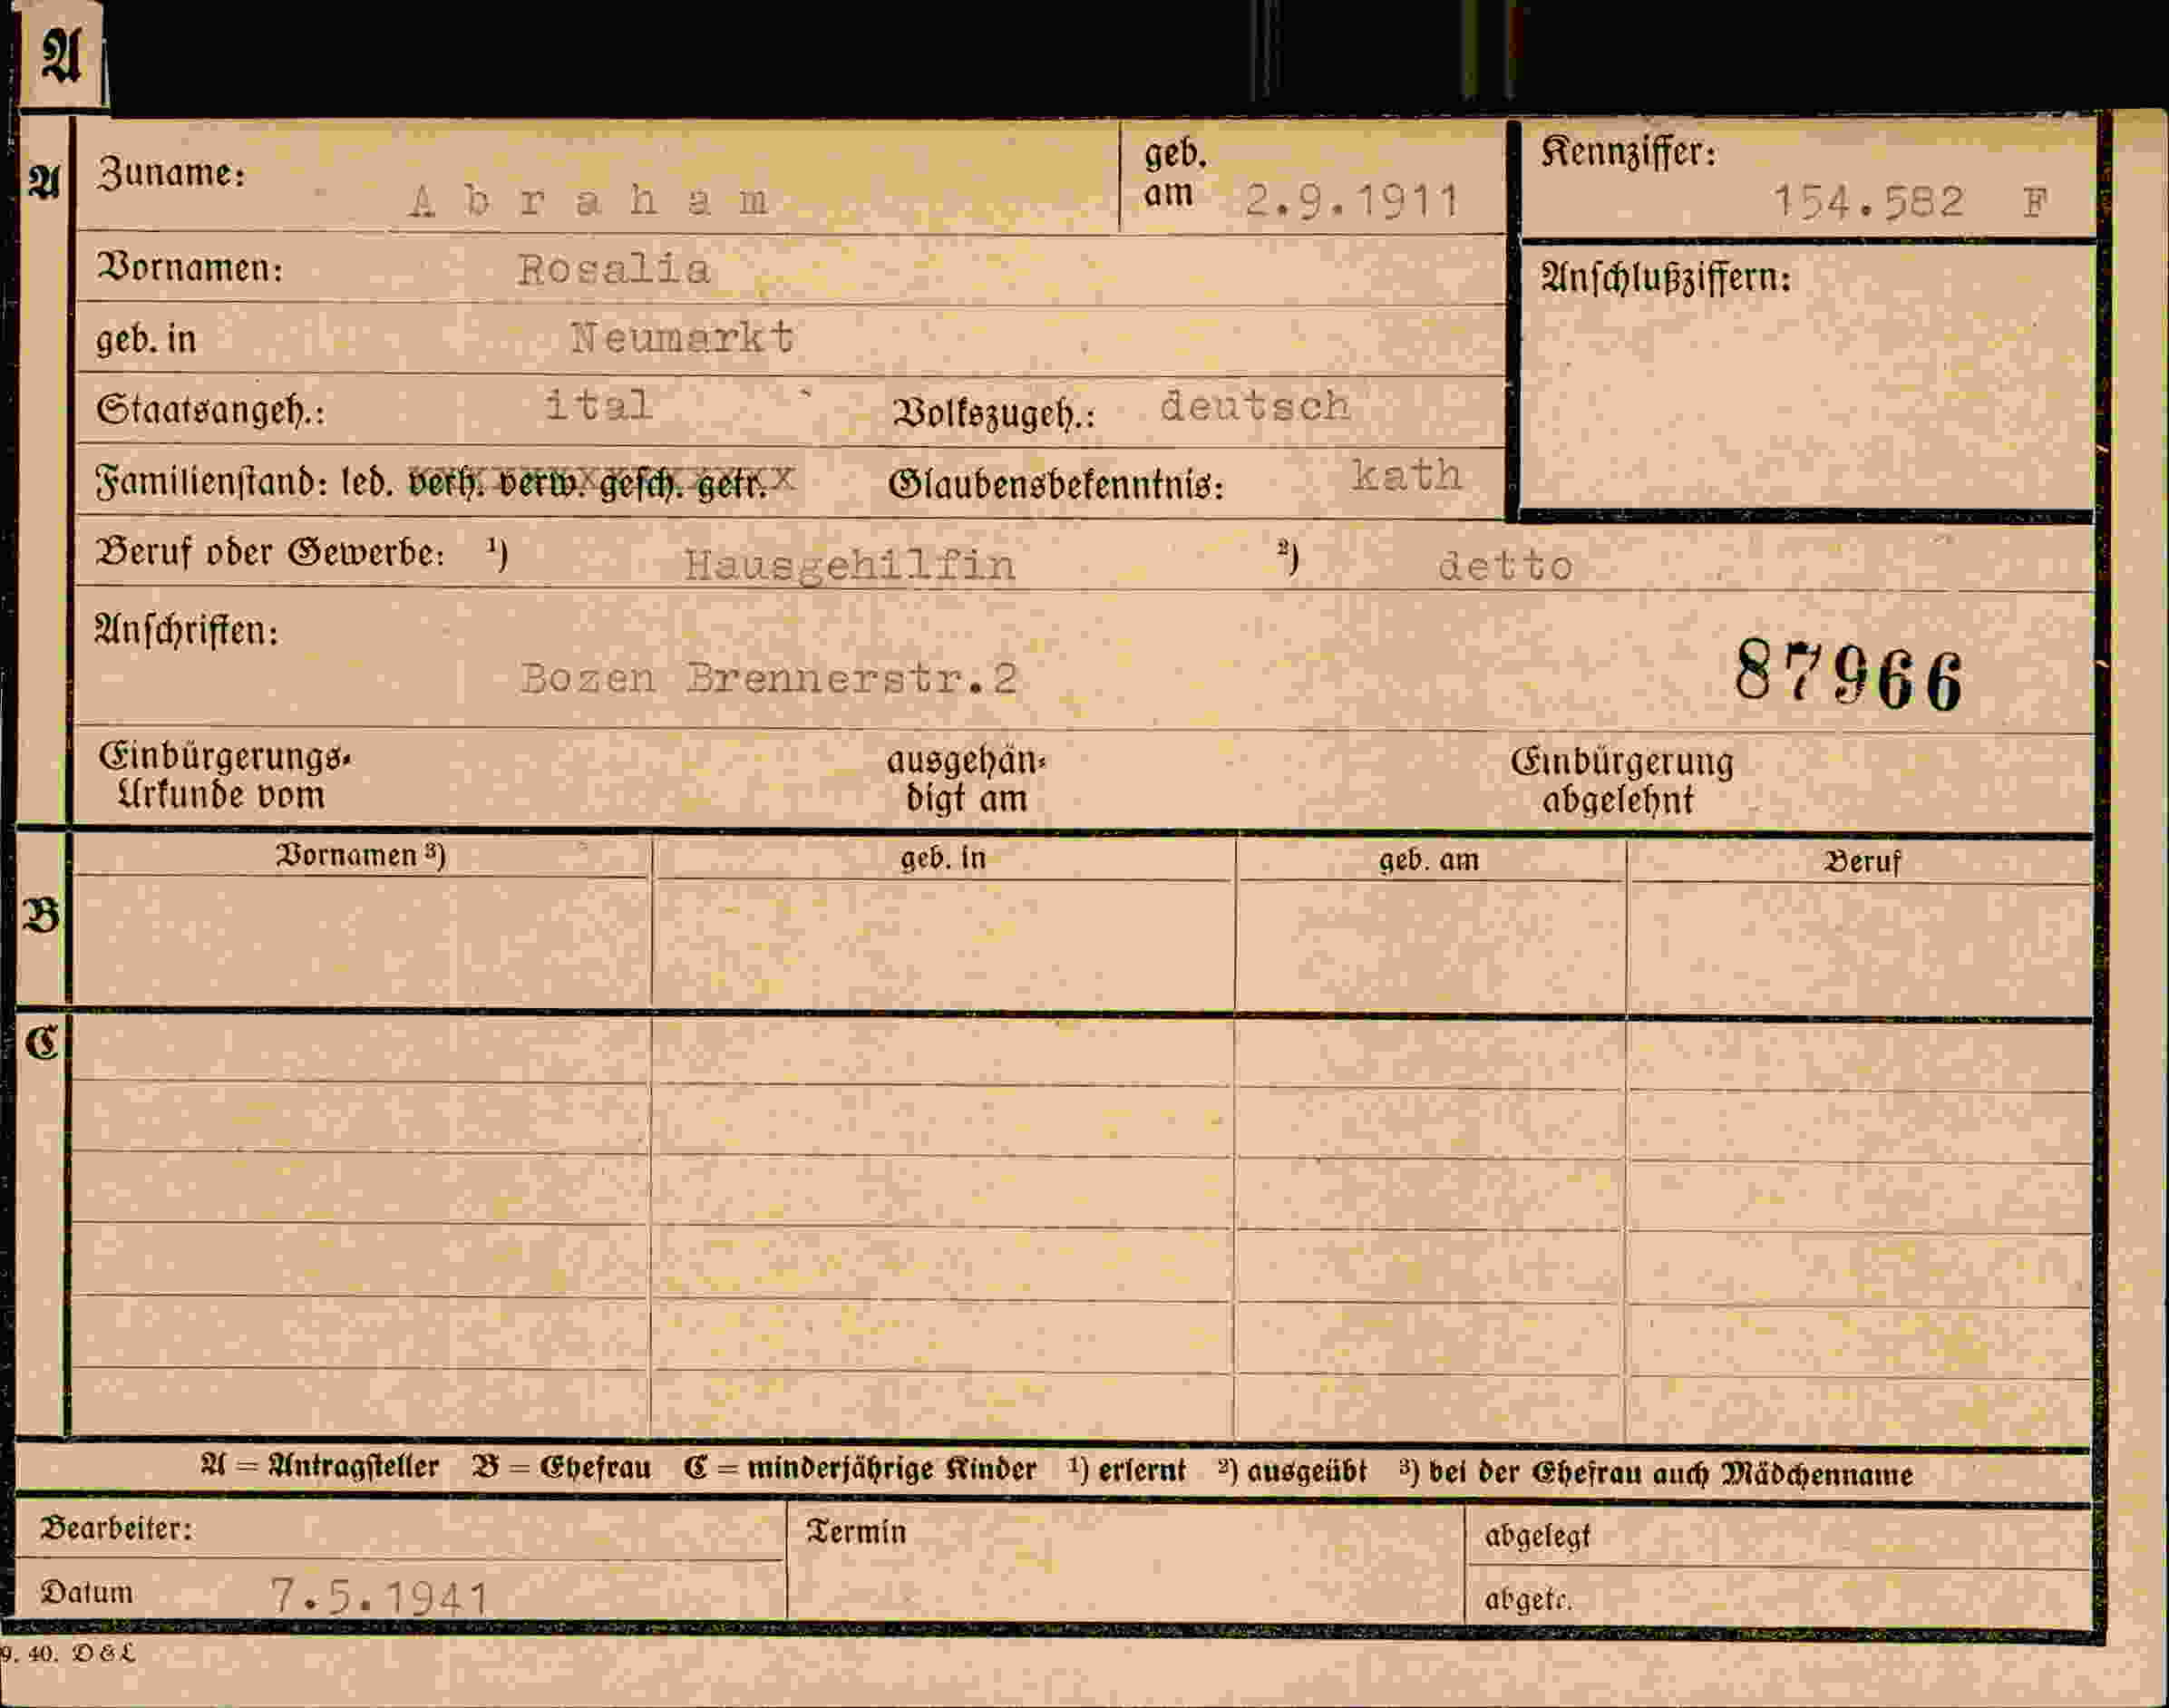 A
A
Zuname: Abraham geb. am 2.9.1911 Kennziffer: 154.582 F
Vornamen: Rosalia Anschlußziffern:
geb. in Neumarkt
Staatsangeh.: ital Volkszugeh.: deutsch
Familienstand: led. verh. verw. gesch. getr. Glaubensbekenntnis: kath
Beruf oder Gewerbe: ¹) Hausgehilfin ²) detto
Anschriften:
Bozen Brennerstr.2 87966
Einbürgerungs-Urkunde vom ausgehän-digt am Einbürgerung abgelehnt
Vornamen ³) geb. in geb. am Beruf
B
C
A = Antragsteller B = Ehefrau C = minderjährige Kinder ¹) erlernt ²) ausgeübt ³) bei der Ehefrau auch Mädchenname
Bearbeiter: Termin abgelegt
Datum 7.5.1941 abgetr.
9. 40. D & L